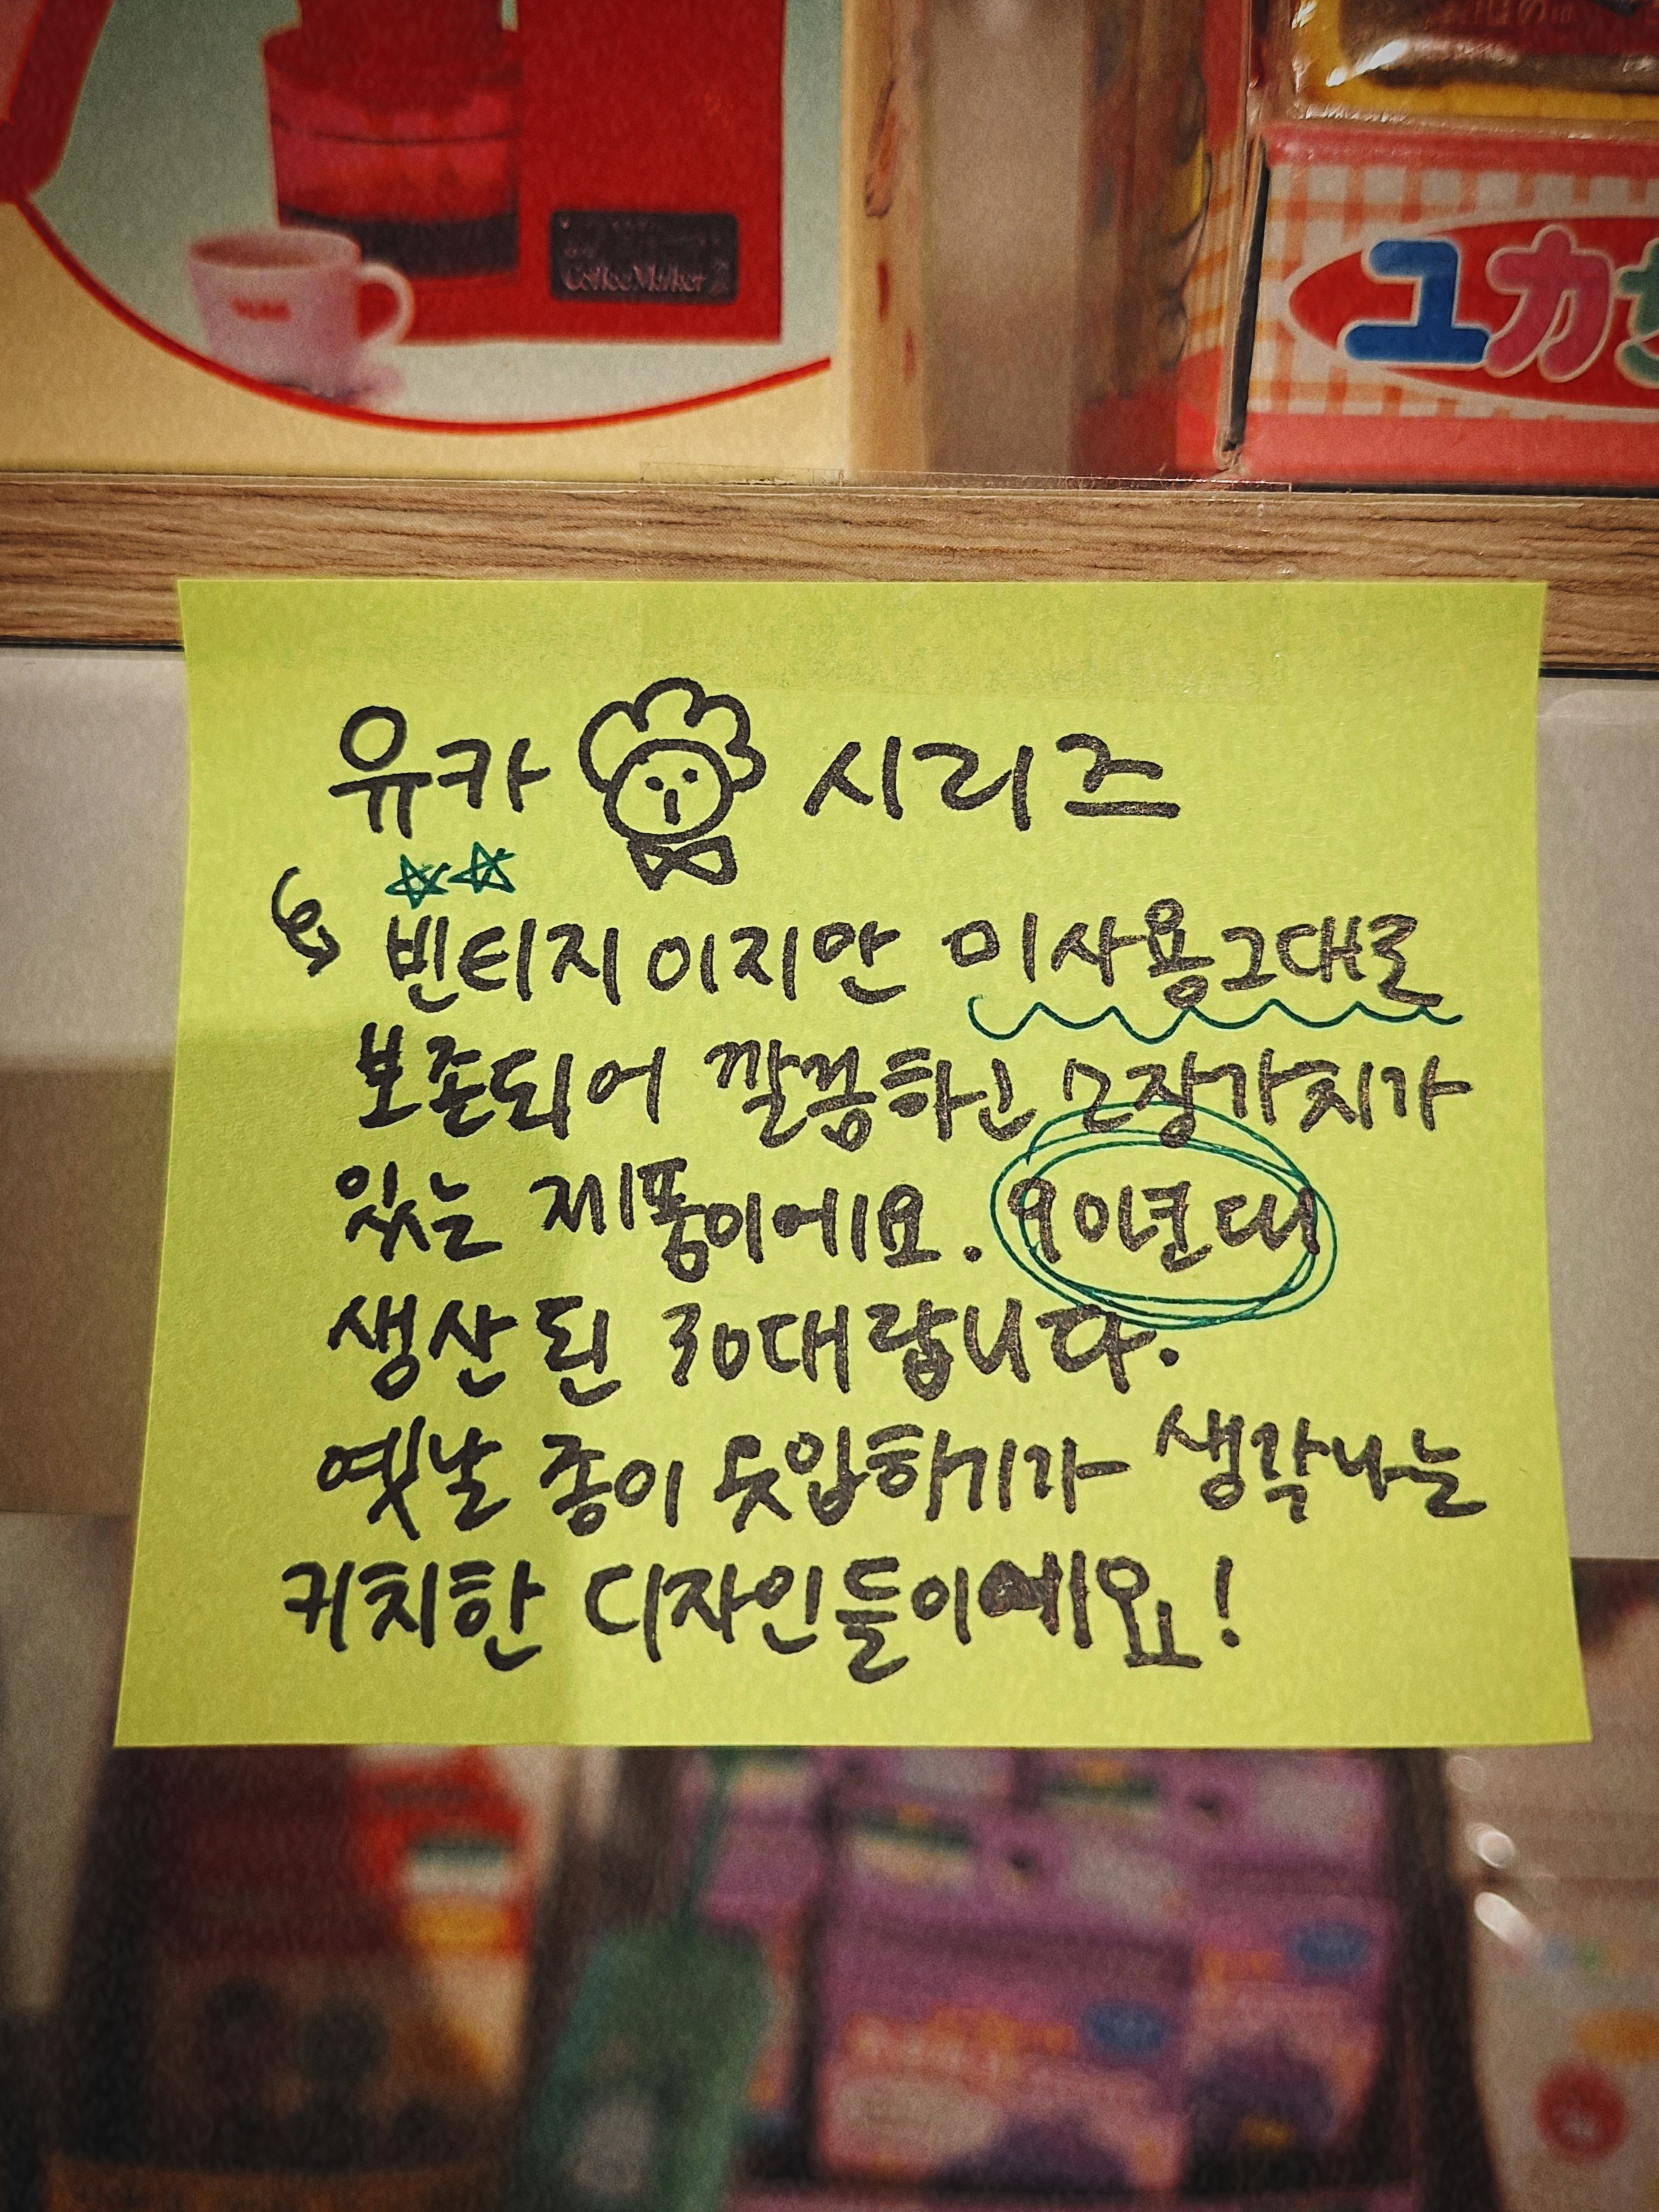 Coffee Maker 2
ユカ
유카 시리즈
빈티지이지만 미사용그대로
보존되어 깔끔하고 소장가치가
있는 제품이에요. 90년대
생산된 30대랍니다.
옛날 종이 옷입히기가 생각나는
키치한 디자인들이예요!